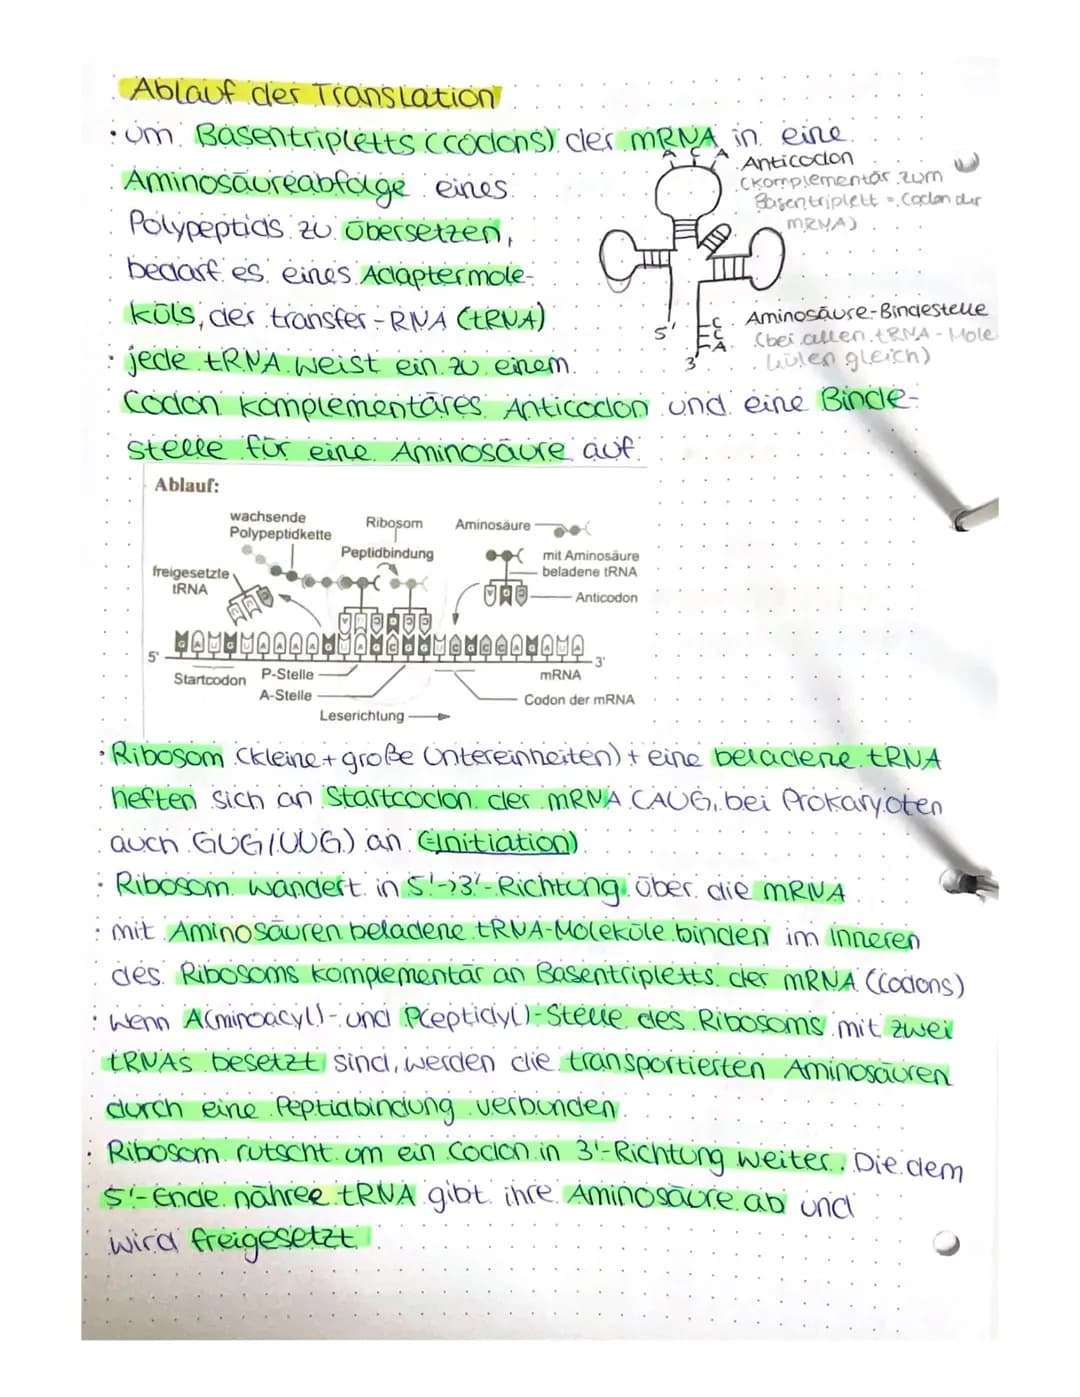 Ablauf der Translation
· um Basentripletts (Codons) der mRNA in eine
Aminosäureabfolge eines
Polypeptids zu übersetzen,
bedarf es eines Adaptermole-
küls, der transfer-RNA (tRNA)
A C A
Anticodon
(komplementär zum
Basentriplett = Codon der
mRNA)
5'
C
C
A
3'
Aminosäure-Bindestelle
(bei allen tRNA-Mole
külen gleich)
· jede tRNA weist ein zu einem
Codon komplementäres Anticodon und eine Binde-
stelle für eine Aminosäure auf
Ablauf:
wachsende
Polypeptidkette
Ribosom
Aminosäure
Peptidbindung
mit Aminosäure
beladene tRNA
freigesetzte
tRNA
Anticodon
5'
3'
Startcodon
P-Stelle
A-Stelle
mRNA
Codon der mRNA
Leserichtung
· Ribosom (kleine + große Untereinheiten) + eine beladene tRNA
heften sich an Startcodon der mRNA (AUG, bei Prokaryoten
auch GUG/UUG) an (=Initiation)
· Ribosom wandert in 5'->3'-Richtung über die mRNA
· mit Aminosäuren beladene tRNA-Moleküle binden im Inneren
des Ribosoms komplementär an Basentripletts der mRNA (Codons)
· Wenn A(minoacyl)- und P(eptidyl)-Stelle des Ribosoms mit zwei
tRNAs besetzt sind, werden die transportierten Aminosäuren
durch eine Peptidbindung verbunden
· Ribosom rutscht um ein Codon in 3'-Richtung weiter. Die dem
5'-Ende nähree tRNA gibt ihre Aminosäure ab und
wird freigesetzt